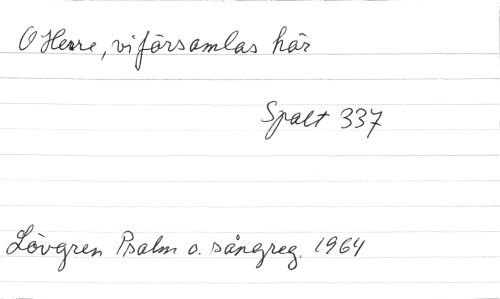 O Herre, vi församlas här
Spalt 337
Lövgren Psalm o. sångreg. 1964